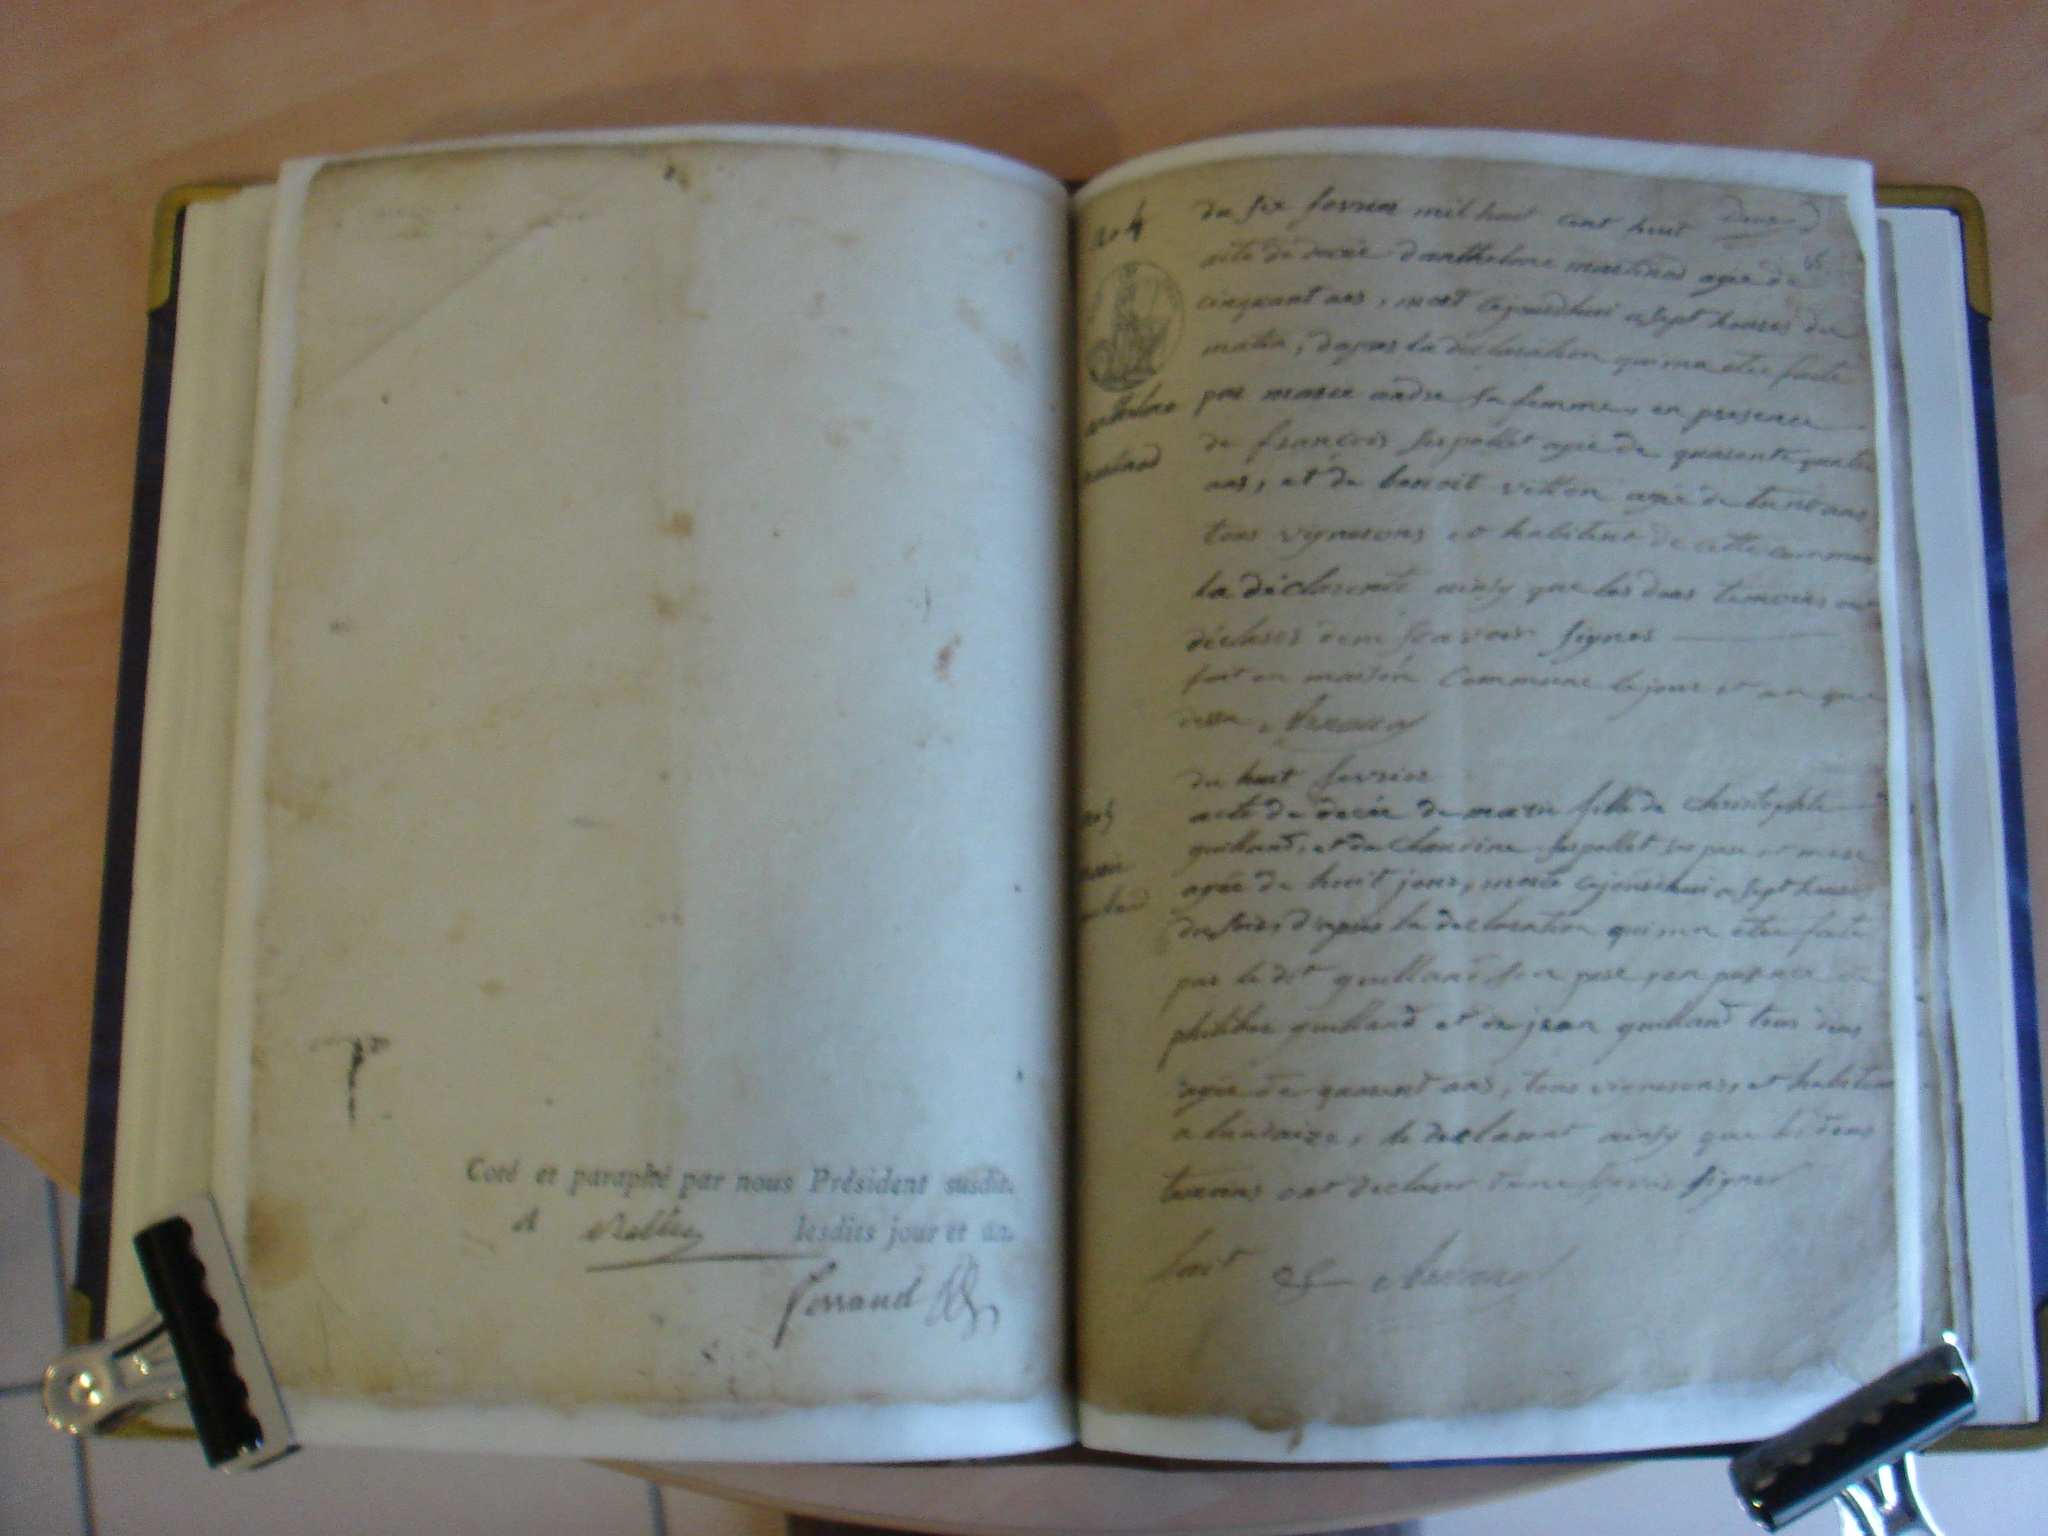 Coté et paraphé par nous Président susdit.
A Belley lesdits jour et an.
Ferrand
no 4
anthelme
martinod
du six fevrier mil huit cent huit
acte de décée danthelme martinod agée de
cinquant ans, mort cejourdhui a sept heures du
matin, dapres la déclaration qui ma etée faite
par marie andre sa femme, en presence
de françois Jospallet agée de quarente quatre
ans, et de benoit vitton agée de trente ans
tous vignerons et habitent de cette commune
la déclarente ainsy que les deus temoins ont
déclarés de ne scavoir signer
fait en maison Commune le jour et an que
dessu
du huit fevrier
no 5
marie
guilland
acte de decée de marie fille de Christophle
guilland, et de Claudine Jospallet ses pere et mere
agée de huit jour, morte cejourdhui a sept heures
du soir, d'apres la déclaration qui ma etée faite
par le dit guilland son pere, en presence de
philiber guilland et de jean guilland tous deus
agée de quarent ans, tous vignerons, et habitent
a , le declarant ainsy que les deus
temoins ont declarer de ne scavoir signer
fait